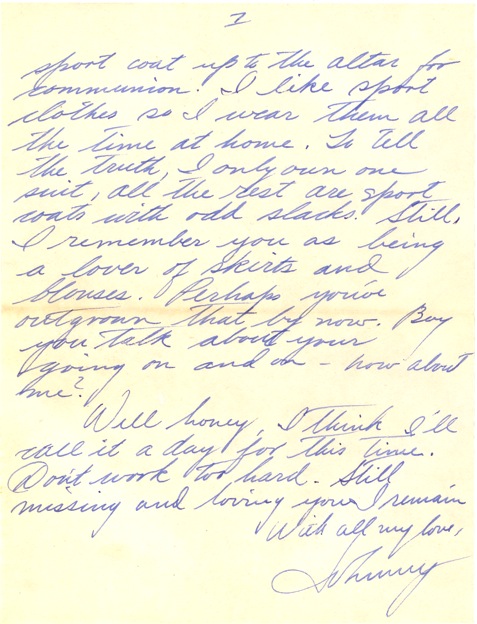 7
sport coat up to the altar for
communion. I like sport
clothes so I wear them all
the time at home. To tell
the truth, I only own one
suit, all the rest are sport
coats with odd slacks. Still,
I remember you as being
a lover of skirts and
blouses. Perhaps you've
outgrown that by now. Boy
you talk about your
going on and on - how about
me?
Well honey, I think I'll
call it a day for this time.
Don't work too hard. Still
missing and loving you I remain
With all my love,
Johnny